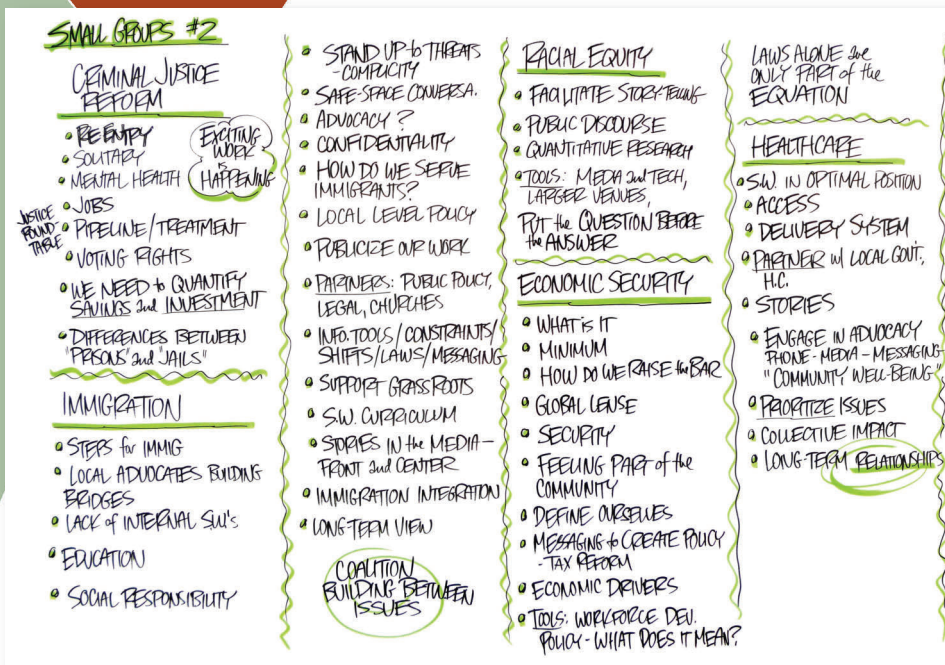 SMALL GROUPS #2
CRIMINAL JUSTICE
REFORM
• RE ENTRY
• SOLITARY
• MENTAL HEALTH
• JOBS
• PIPELINE/TREATMENT
• VOTING RIGHTS
• WE NEED to QUANTIFY
SAVINGS and INVESTMENT
• DIFFERENCES BETWEEN
"PRISONS" and "JAILS"
EXCITING
WORK
is
HAPPENING
JUSTICE
ROUND
TABLE
IMMIGRATION
• STEPS for IMMIG
• LOCAL ADVOCATES BUILDING
BRIDGES
• LACK of INTERNAL S.W.'s
• EDUCATION
• SOCIAL RESPONSIBILITY
• STAND UP to THREATS
- COMPLICITY
• SAFE-SPACE CONVERSA.
• ADVOCACY?
• CONFIDENTIALITY
• HOW DO WE SERVE
IMMIGRANTS?
• LOCAL LEVEL POLICY
• PUBLICIZE OUR WORK
• PARTNERS: PUBLIC POLICY,
LEGAL, CHURCHES
• INFO. TOOLS/CONSTRAINTS/
SHIFTS/LAWS/MESSAGING
• SUPPORT GRASS ROOTS
• S.W. CURRICULUM
• STORIES IN the MEDIA-
FRONT and CENTER
• IMMIGRATION INTEGRATION
• LONG-TERM VIEW
COALITION
BUILDING BETWEEN
ISSUES
RACIAL EQUITY
• FACILITATE STORY-TELLING
• PUBLIC DISCOURSE
• QUANTITATIVE RESEARCH
• TOOLS: MEDIA and TECH,
LARGER VENUES,
PUT the QUESTION BEFORE
the ANSWER
ECONOMIC SECURITY
• WHAT is IT
• MINIMUM
• HOW DO WE RAISE the BAR
• GLOBAL LENSE
• SECURITY
• FEELING PART of the
COMMUNITY
• DEFINE OURSELVES
• MESSAGING to CREATE POLICY
- TAX REFORM
• ECONOMIC DRIVERS
• TOOLS: WORKFORCE DEV.
POLICY - WHAT DOES IT MEAN?
LAWS ALONE are
ONLY PART of the
EQUATION
HEALTHCARE
• S.W. IN OPTIMAL POSITION
• ACCESS
• DELIVERY SYSTEM
• PARTNER w/ LOCAL GOVT.,
H.C.
• STORIES
• ENGAGE IN ADVOCACY
PHONE - MEDIA - MESSAGING
"COMMUNITY WELL-BEING"
• PRIORITIZE ISSUES
• COLLECTIVE IMPACT
• LONG-TERM RELATIONSHIPS